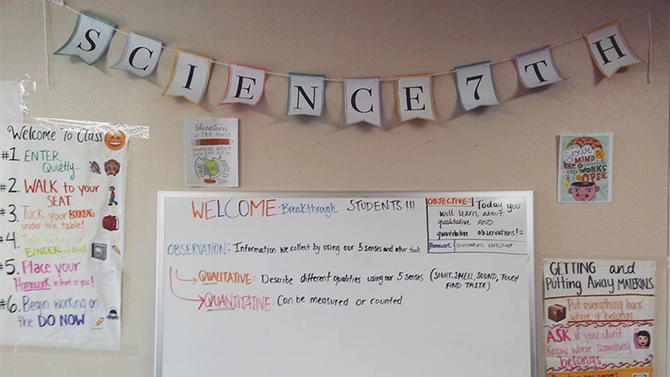 SCIENCE 7TH
Welcome To Class
#1. ENTER
Quietly...
#2. WALK to your
SEAT
#3. Tuck your BOOKBAG
under the table!
#4.
BINDER
#5. Place your
Homework in front of you!
#6. Begin working on
the DO NOW
Education is the
YOUR
MIND
WORKS
OPEN
WELCOME Breakthrough STUDENTS!!!
OBJECTIVE: Today you
will learn about
qualitative AND
quantitative observations!
Homework:
OBSERVATION: Information we collect by using our 5 senses and other tools
QUALITATIVE: Describe different qualities using our 5 senses (SIGHT, SMELL, SOUND, TOUCH
AND TASTE)
QUANTITATIVE: Can be measured or counted.
GETTING and
Putting Away MATERIALS
Put everything back
where it belongs
ASK if you don't
know where something
belongs